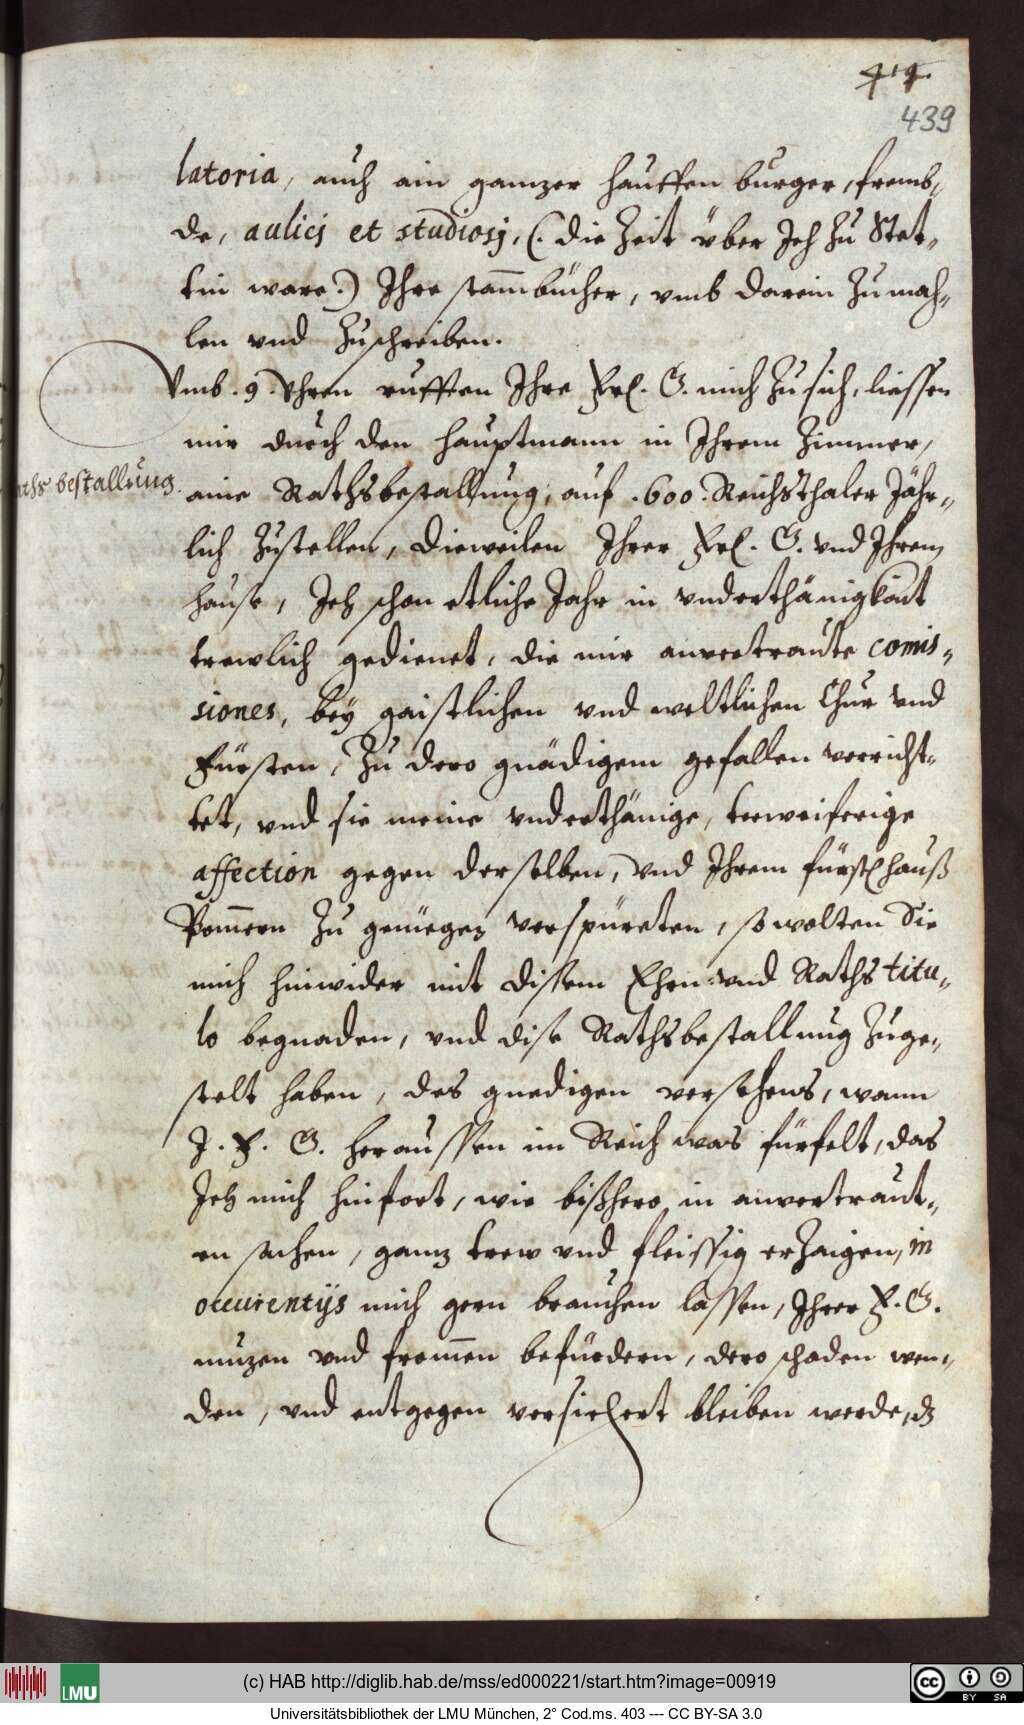 419.
439
latoria, auch ain ganzer hauffen burger, fremb-
de, aulici et studiosj, (. die Zeit über Jch zu Stet-
tin ware.) Ihre stam̅bücher, vmb darein Zu mah-
len vnd Zuschreiben.
Vmb .9. Vhren rufften Ihre Frl. G. mich Zu sich, liessen
mir durch den hauptmann in Ihrem Zimmer,
aths bestallung.
eine Rathsbestallung, auf .600. Reichsthaler Jähr-
lich Zustellen, Dieweilen Ihrer Frl. G. vnd Ihrem
hause, Jch schon etliche Jahr in vnderthänigkait
trewlich gedienet, die mir anvertraute comis-
siones, bey gaistlichen vnd weltlichen Chur vnd
Fürsten, Zu dero gnädigem gefallen verricht-
tet, vnd sie meine vnderthänige, treweiferige
affection gegen derselben, vnd Ihrem fürstl hauß
Pom̅ern Zu genüegen verspüreten, so wolten Sie
mich hinwider mit dissem Ehrn- vnd Raths titu-
lo begnaden, vnd dise Rathsbestallung Zuge-
stelt haben, des gnedigen versehens, wann
J. F. G. heraussen im Reich was fürfelt, das
Jch mich hinfort, wie bißhero in anvertraut-
en sachen, ganz trew vnd fleissig erZaigen, in
occurentijs mich gern brauchen lassen, Ihrer F. G.
nuzen vnd from̅en befürdern, dero schaden wen-
den, vnd entgegen versichert bleiben werde, dz
(c) HAB http://diglib.hab.de/mss/ed000221/start.htm?image=00919
LMU
cc BY SA
Universitätsbibliothek der LMU München, 2° Cod.ms. 403 --- CC BY-SA 3.0